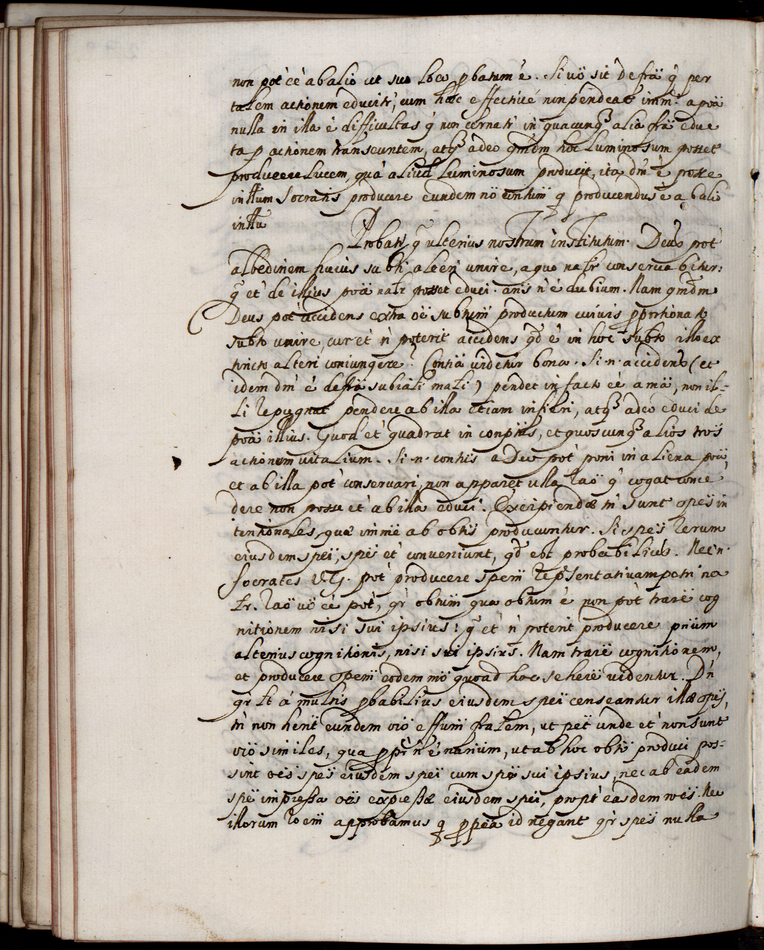 non pot' cē ab alio ut suo loco ꝑbatum ē. Si uō sit de frā q̄ per
talem actionem educitr', cum hōc effectiuē non pendeat imm.ē a poā
nulla in illa ē difficultas q̄ non cernatr' in quacunq' alia frā educ
ta ꝑ actionem transeuntem, atq' adeo qm̄dm̄ hoc luminosum posset
producere lucem, quā aliud luminosum producit, ita dn̄' ē posse
Socratis producere eundem nō entium q producendus ē ab ali
Probatr' q̄ ulterius nostrum institutum. Deus pot'
albedinem huius subti alteri unire, a quo natr' conseruabitur:
q̄ et' de illius poā natr' posset educi. añs n' ē dubium. Nam qm̄dm̄
Deus pot' accidens extra oē subtum productum cuiuis pportionato
subto unire, cur et' n' poterit accidens qd' ē in hoc subto illo ex
tincto alteri coniungere? Contiā uidetur bona. Si .n. accidens (et
idem dn̄' ē de frā subiali mali) pendet in facto cē a mā, non il-
li repugnat pendere ab illa etiam in fieri, atq' adeo educi de
poā illius. Quod et' quadrat in conptis, et quoscunq' alios tr̄os
actionum uitalium. Si .n. contis a Deo pot' poni in aliena poā
et ab illa pot' conseruari, non apparet ulla raō q̄ cogat conce
dere non posse et' ab illa educi. Excipiendæ tn̄ sunt spēs in
tentionales, quæ imme ab obtis producuntur. Si spēs rerum
eiusdem spēi, spē et' conueniunt, qd' est probabilius. Nec .n.
Socrates V.G. pot' producere spem repsentatiuam na
tr. Raō uō cē pot', qr' obtum qua obtum ē non pot' trare cog
nitionem nisi sui ipsius: q̄ et' n' poterit producere prium
alterius cognitionis, nisi sui ipsius. Nam trare cognitionem,
et producere spem eodem mō quoad hoc se here uidentur. Dn̄'
qr' lt' a multis ꝑbabilius eiusdem spēi censeantur illæ spēs,
tn̄ non hent eundem oīo effum fralem, ut pet' unde et' non sunt
oīo similes, qua ꝑpr' n' ē narium, ut ab hoc obto produci pos-
sint oēs spēs eiusdem spēi cum spē sui ipsius, nec ab eadem
spē impressa oēs expressæ eiusdem spēi, propt' easdem rōes. Nec
illorum roēm approbamus q ꝑpeā id negant qr' spēs nulla